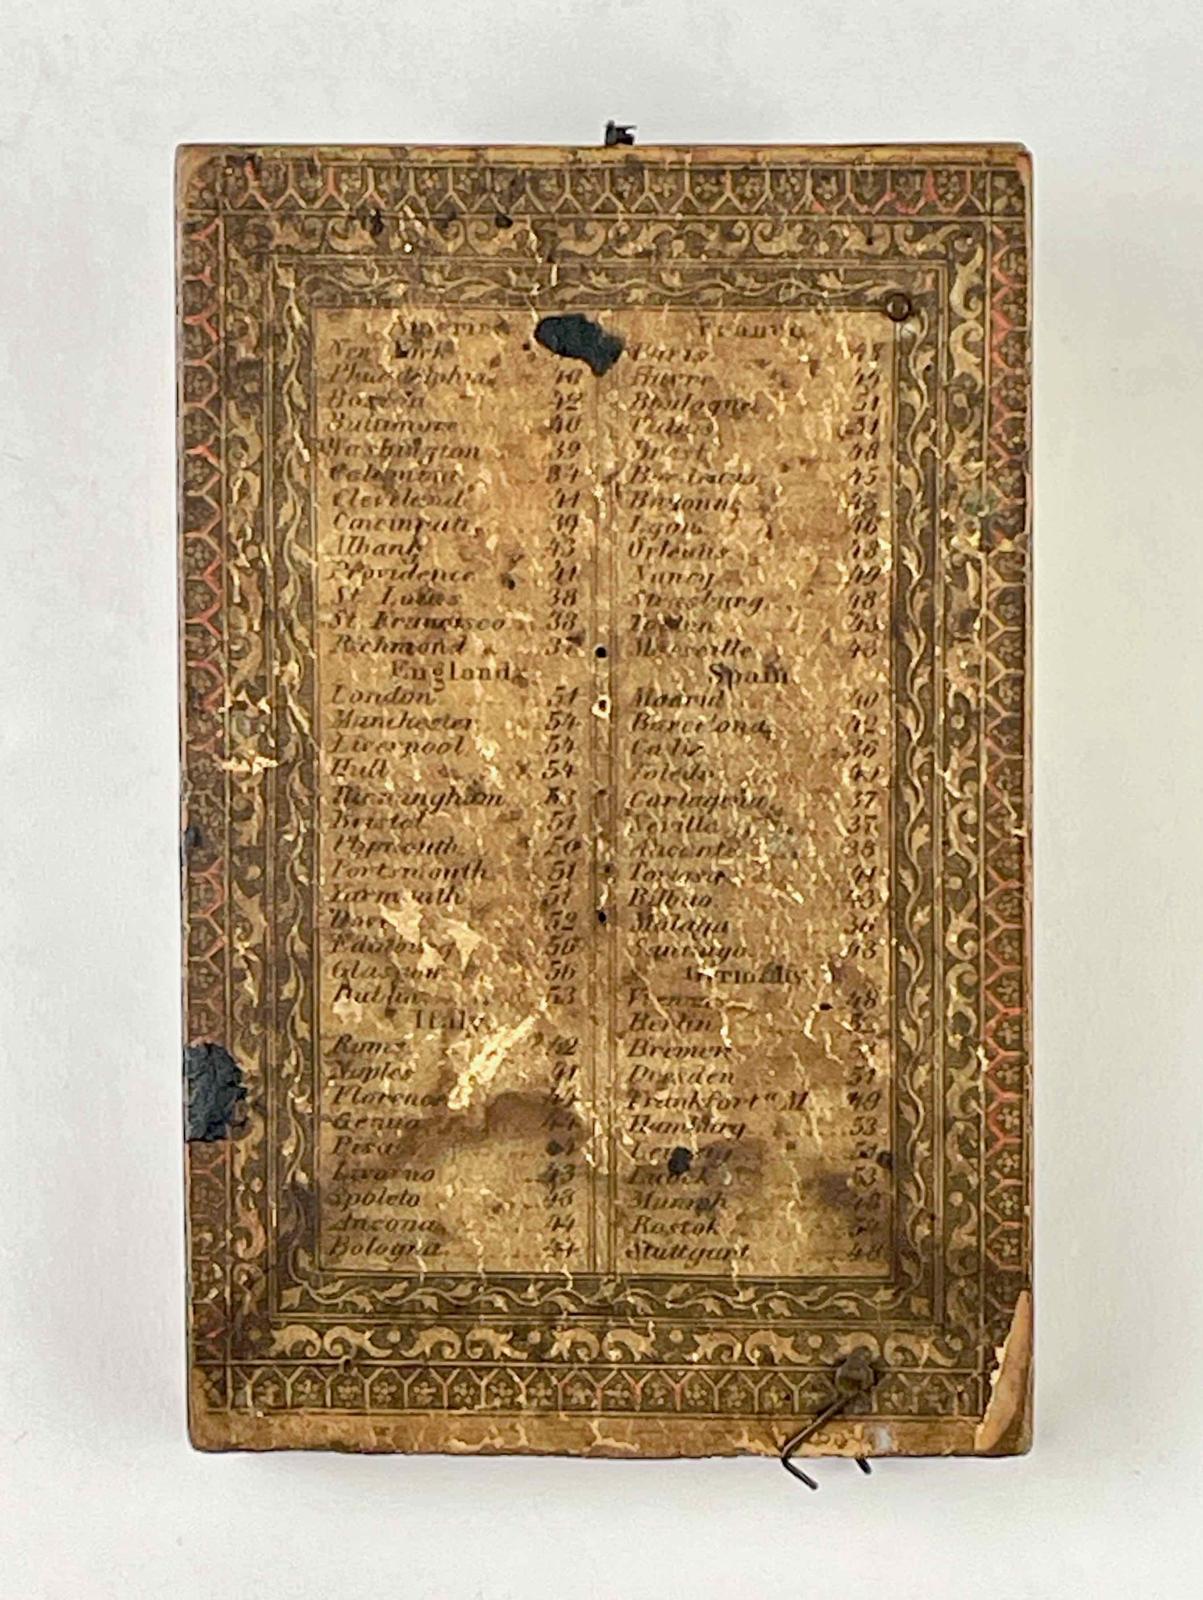 America
New York
Philadelphia 40
Boston 42
Baltimore 40
Washington 39
34
Cleveland 41
39
Albany 43
Providence 41
St. Louis 38
St. Francisco 38
Richmond 37
England
London 51
Manchester 54
Liverpool 54
Hull 54
Birmingham 53
Bristel 51
Plymouth 50
Portsmouth 51
Yarmouth 51
52
Edinburg 56
Glasgow 56
Dublin 53
Italy
Rome 42
Naples 41
Florence 44
Genua 44
Pisa
Livorno 43
Spoleto 43
Ancona 44
Bologna 44
France
Paris
Havre
Boulogne 51
Brest 48
45
Bayonne
Lyons 46
Orleans 48
Nancy 49
Strasburg 48
Toulon 43
Marseille 43
Spain
Madrid 40
Barcelona 42
36
Toledo
37
Sevilla 37
38
Tortosa 41
Bilbao 43
Malaga 36
Santiago 43
Germany
Vienna 48
Berlin 52
Bremen
Dresden 51
Frankfort a M 49
Hamburg 53
51
Lubeck 53
Munich 48
Rostok 54
Stuttgart 48